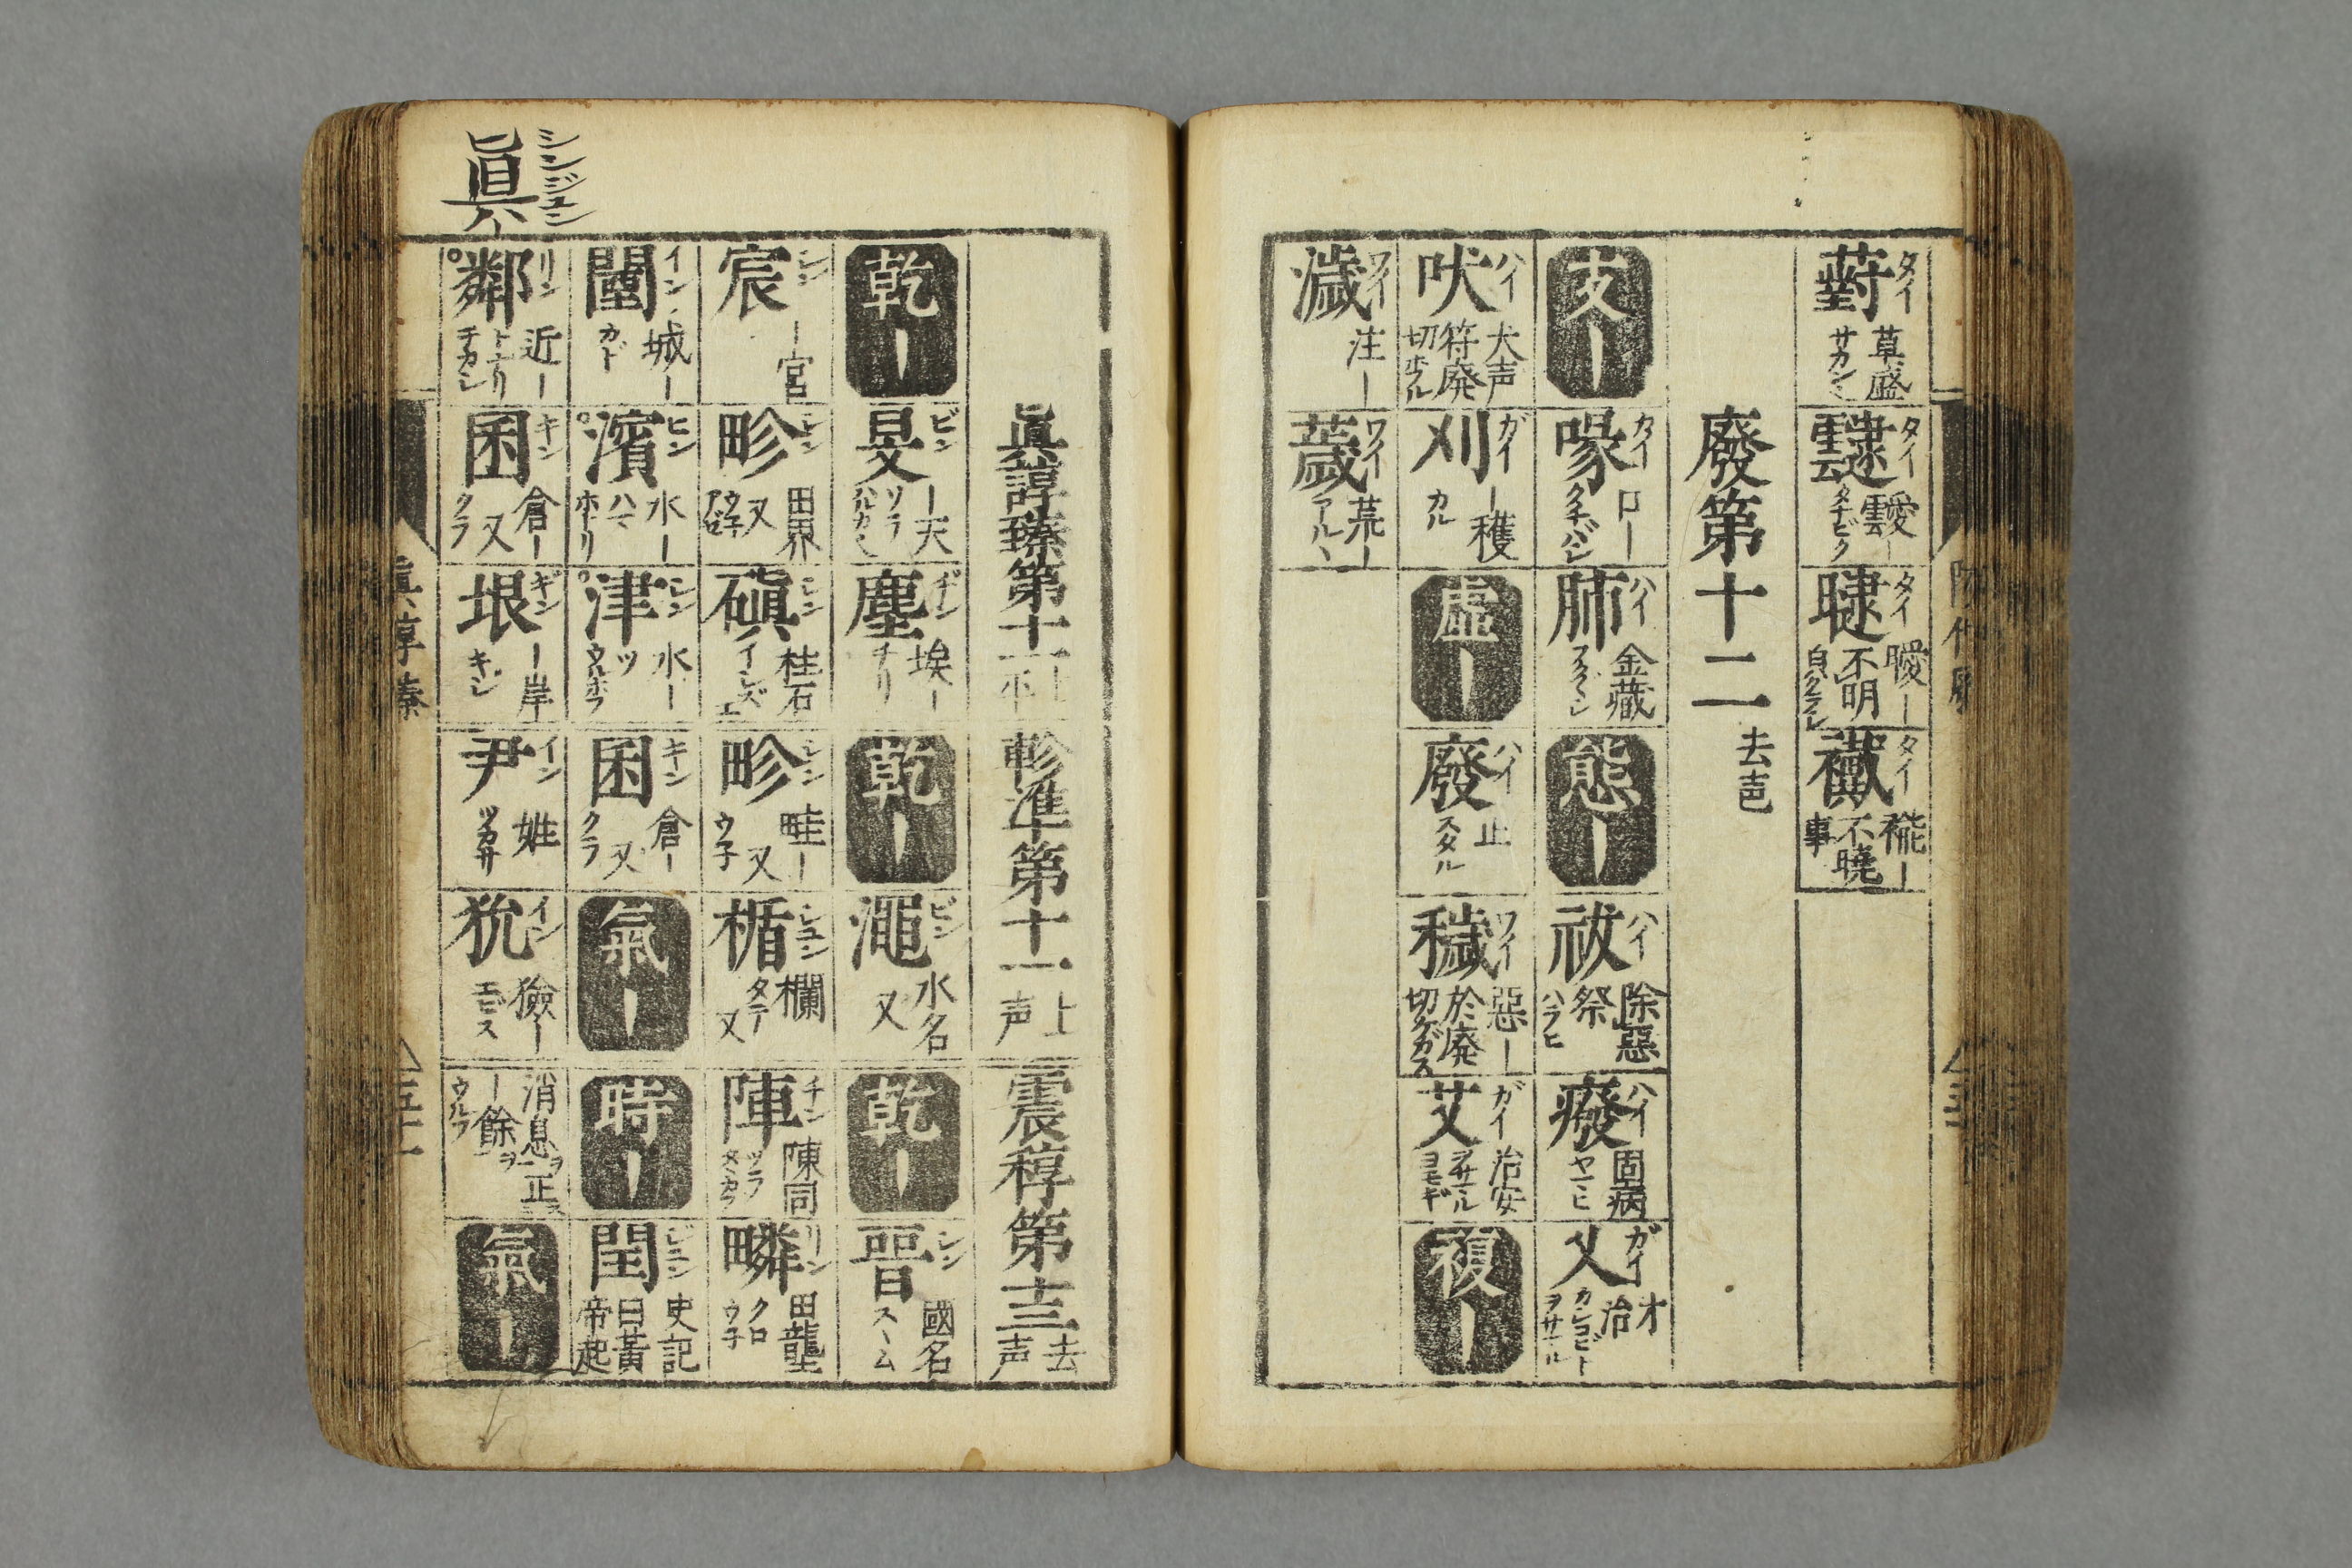 タイ 薱 草盛 サカン
タイ 靆 靉ー雲 タナビク
タイ 曃 曖ー不明 白クラシ
タイ 襶 褦ー不曉事
廢第十二 去声
支ー
カイ 喙 口ー クチバシ
ハイ 肺 金藏 フクヽシ
態ー
ハイ 祓 除惡祭 ハラヒ
ハイ 癈 固病 ヤマヒ
ガイ 乂 才治 カシコビト ヲサマル
ハイ 吠 犬声 符廃切 ホフル
ガイ 刈 ー穫 カル
虚ー
ハイ 廢 止 スタル
ワイ 穢 惡ー 於廃切 ケガス
ガイ 艾 治安 ヲサマル ヨモギ
複ー
ワイ 濊 注ー
ワイ 薉 荒ー アルヽ
眞諄臻第十一 上平
軫準第十一 上声
震稕第十三 去声
乾ー
ビン 旻 ー天 ソラ
ヂン 塵 埃ー チリ
乾ー
ビン 澠 水名 又
乾ー
シン 晉 國名 スヽム
シン 宸 ー宮
シン 畛 田界 又 ウネ アゼ
シン 磌 柱石 イシズエ
シン 畛 畦ー 又 ウ子
シュン 楯 欄 タテ 又
チン 陣 陳同 ツラ
リン 疄 田壟 クロ ウ子
イン 闉 城ー カド
ヒン 濱 水ー ハマ ホトリ
シン 津 水ー ツ ウルホフ
キン 囷 倉ー 又 クラ
氣ー
時ー
ジュン 閏 史記曰黃帝起
シンジュン 眞
リン 鄰 近ー トナリ チカシ
キン 囷 倉ー 又 クラ
ギン 垠 ー岸 キシ
イン 尹 姓 ツカサ
イン 狁 獫ー エビス
消息ヲ正ス ー餘ヲ ウルフ
氣ー
眞諄臻